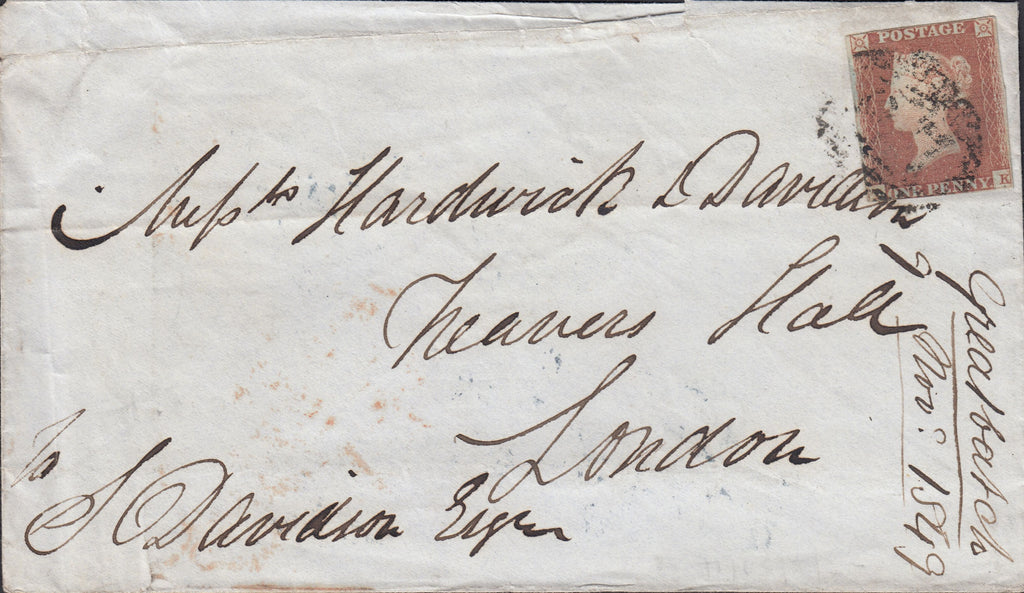 POSTAGE
ONE PENNY
K
Messrs Hardwick & Davidson
Weavers Hall
London
To
S Davidson Esqre
Greatbatch
9 Novr 1849